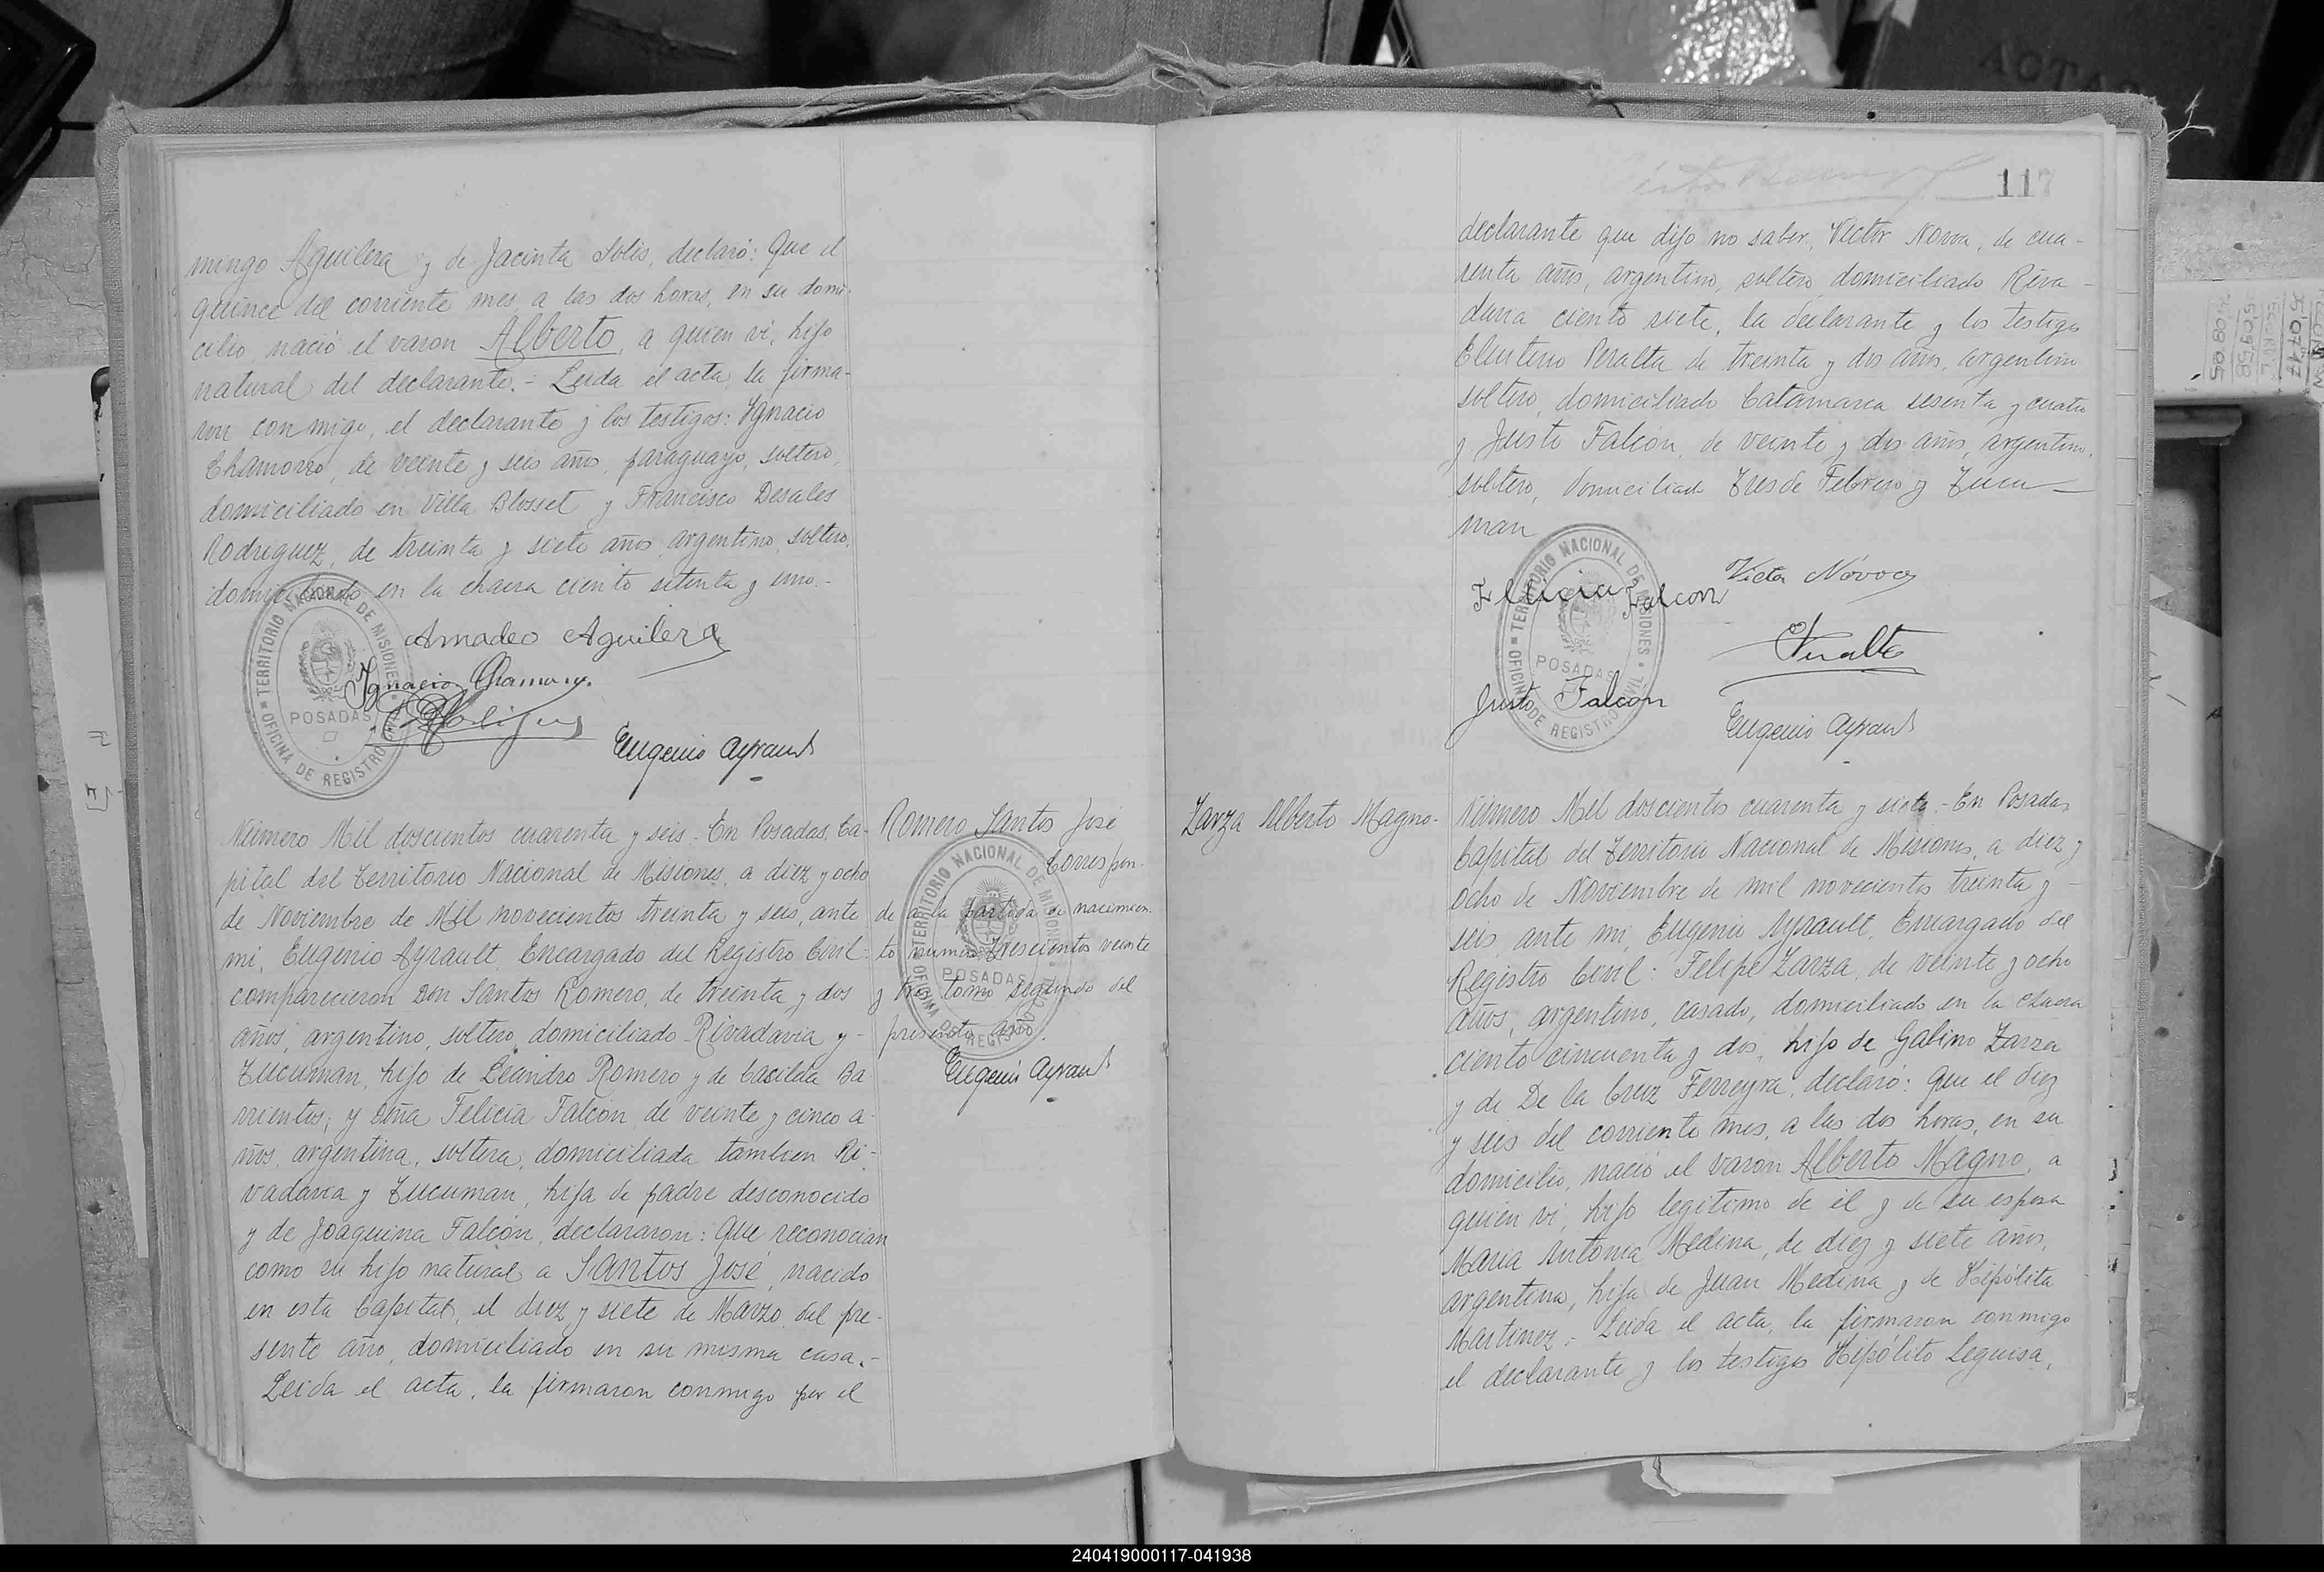 mingo Aguilera y de Jacinta Solis, declaró: Que el
quince del corriente mes a las dos horas, en su domi-
cilio, nació el varon Alberto, a quien ví, hijo
natural del declarante.- Leida el acta, la firma-
ron conmigo, el declarante y los testigos: Ignacio
Chamorro, de veinte y seis años, paraguayo, soltero,
domiciliado en Villa Blosset y Francisco Desales
Rodriguez, de treinta y siete años, argentino, soltero,
domiciliado en la chacra ciento setenta y uno.-
TERRITORIO NACIONAL DE MISIONES
OFICINA DE REGISTRO CIVIL
POSADAS
Amadeo Aguilera
Ignacio Chamorro
Eugenio Ayrault
Número Mil doscientos cuarenta y seis.- En Posadas, Ca-
pital del Territorio Nacional de Misiones, a diez y ocho
de Noviembre de Mil novecientos treinta y seis, ante
mi, Eugenio Ayrault, Encargado del Registro Civil:
comparecieron Don Santos Romero, de treinta y dos
años, argentino, soltero, domiciliado Rivadavia y -
Tucuman, hijo de Leandro Romero y de Casilda Ba
rrientos; y doña Felicia Falcon, de veinte y cinco a-
ños, argentina, soltera, domiciliada tambien Ri-
vadavia y Tucuman, hija de padre desconocido
y de Joaquina Falcón, declararon: Que reconocian
como su hijo natural a Santos José, nacido
en esta Capital, el diez y siete de Marzo del pre-
sente año, domiciliado en su misma casa.-
Leida el acta, la firmaron conmigo por el
Romero Santos José
Correspon-
de a la partida de nacimien-
to numero trescientos veinte
y tres tomo segundo del
presente año.
TERRITORIO NACIONAL DE MISIONES
OFICINA DE REGISTRO CIVIL
POSADAS
Eugenio Ayrault
117
declarante que dijo no saber, Victor Novoa, de cua-
renta años, argentino, soltero, domiciliado Riva-
davia ciento siete, la declarante y los testigos
Eleuterio Peralta de treinta y dos años, argentino
soltero, domiciliado Catamarca sesenta y cuatro
y Justo Falcón, de veinte y dos años, argentino,
soltero, domiciliado Tres de Febrero y Tucu-
man
TERRITORIO NACIONAL DE MISIONES
OFICINA DE REGISTRO CIVIL
POSADAS
Felicia Falcon
Victor Novoa
Peralta
Justo Falcón
Eugenio Ayrault
Zarza Alberto Magno-
Número Mil doscientos cuarenta y siete.- En Posadas,
Capital del Territorio Nacional de Misiones, a diez y
ocho de Noviembre de mil novecientos treinta y -
seis, ante mi, Eugenio Ayrault, Encargado del
Registro Civil: Felipe Zarza, de veinte y ocho
años, argentino, casado, domiciliado en la chacra
ciento cincuenta y dos, hijo de Gabino Zarza
y de De la Cruz Ferreyra, declaró: Que el diez
y seis del corriente mes, a las dos horas, en su
domicilio, nació el varon Alberto Magno, a
quien vi, hijo legitimo de él y de su esposa
Maria Antonia Medina, de diez y siete años,
argentina, hija de Juan Medina y de Hipólita
Martinez.- Leida el acta, la firmaron conmigo
el declarante y los testigos Hipólito Leguisa,
240419000117-041938